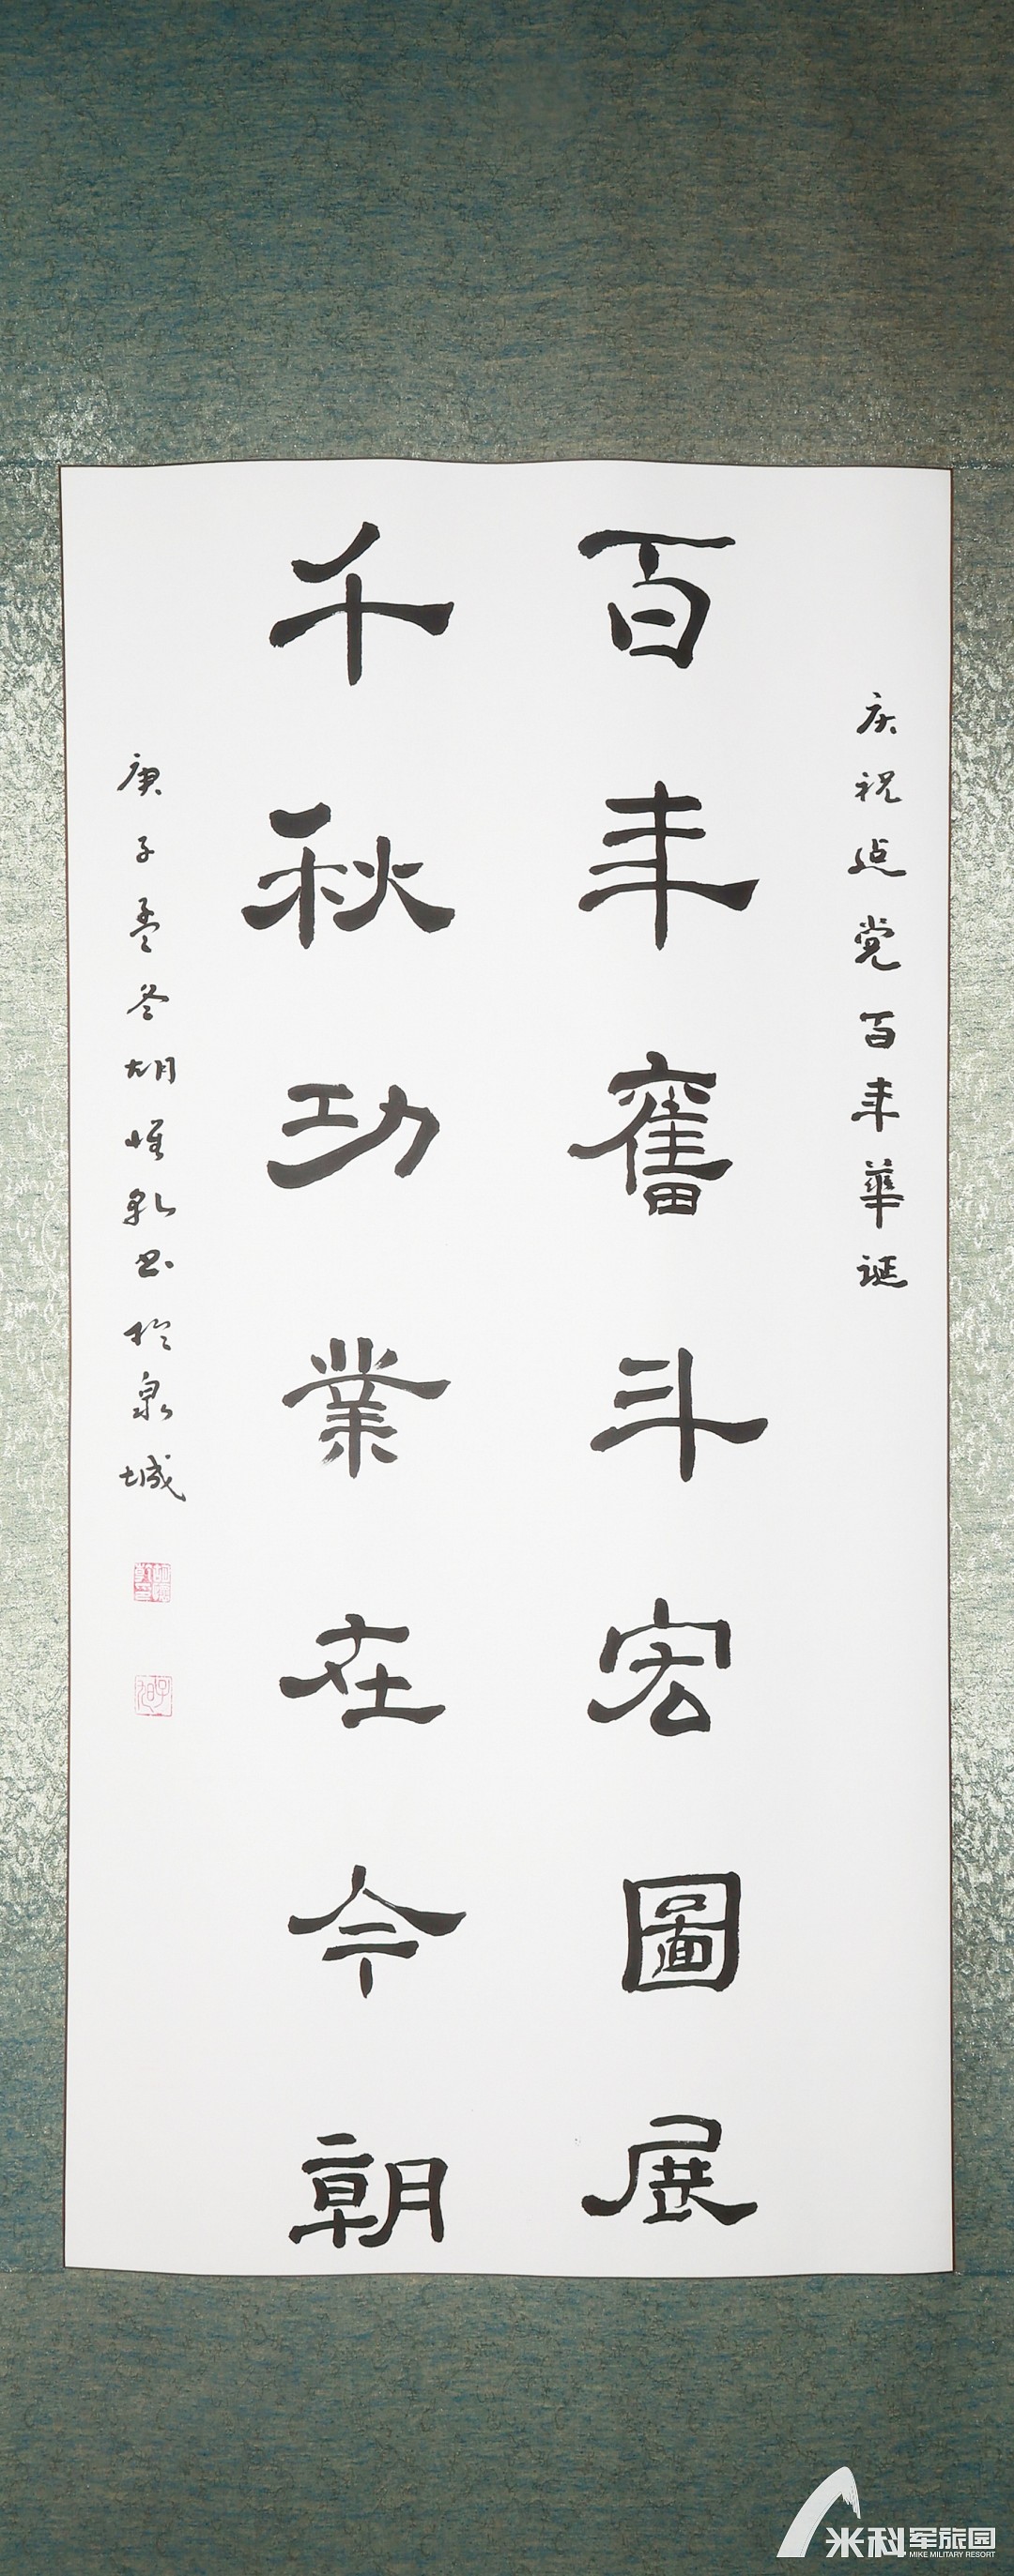 庆祝建党百年華诞
百年奮斗宏圖展
千秋功業在今朝
庚子孟冬胡惟乾书於泉城
米科军旅园
MIKE MILITARY RESORT